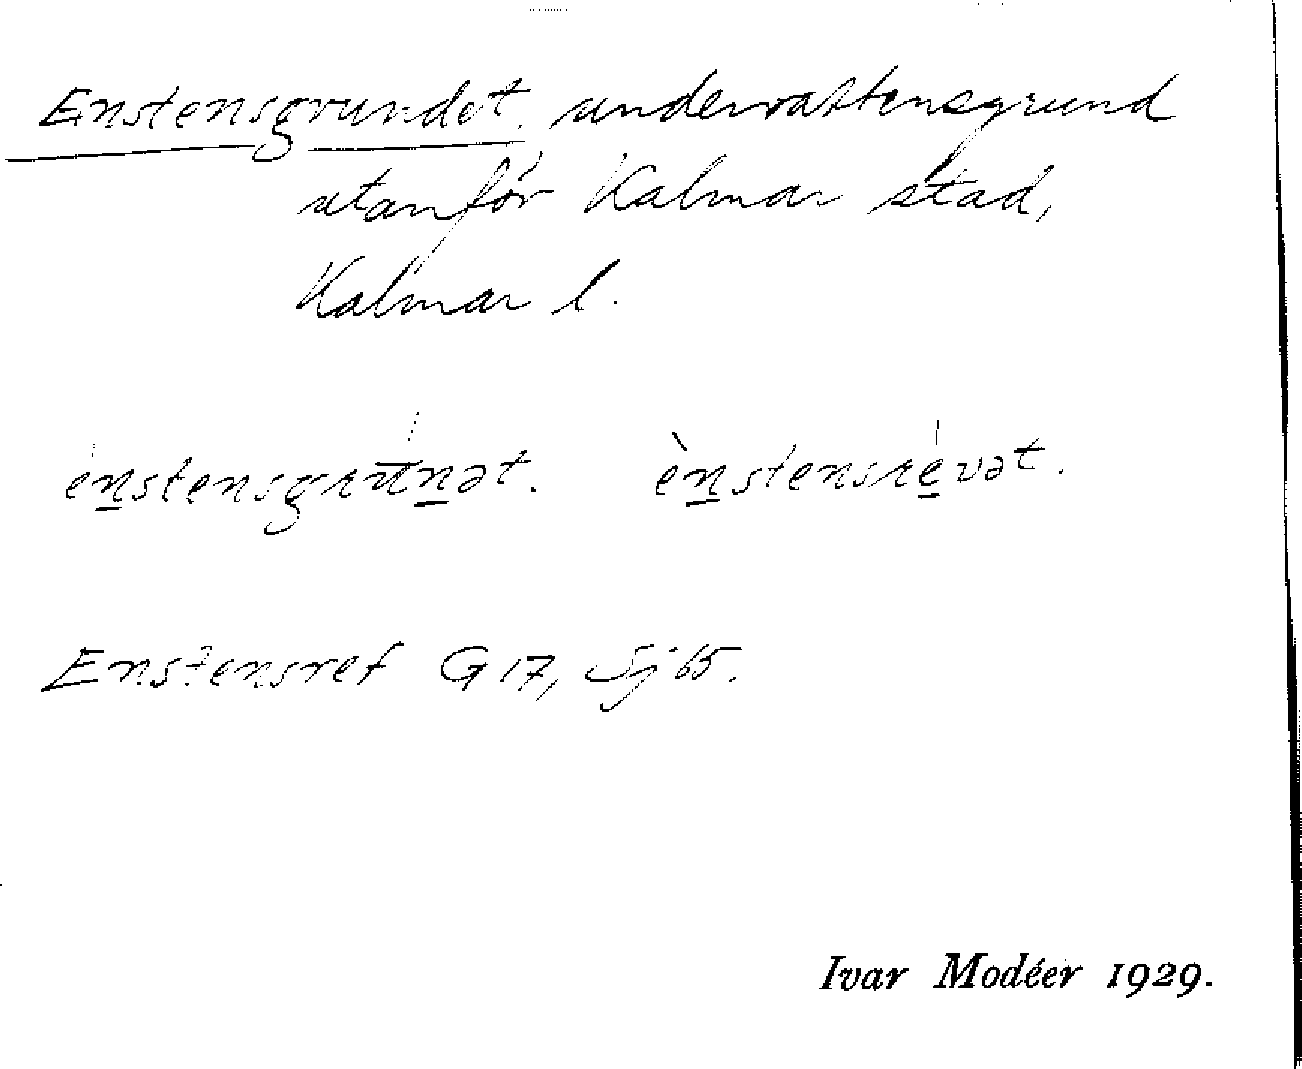 Enstensgrundet. undervattensgrund
utanför Kalmar stad,
Kalmar l.
ènstensgrūnət. ènstensrévət.
Enstensref G 17, Sj 65.
Ivar Modéer 1929.